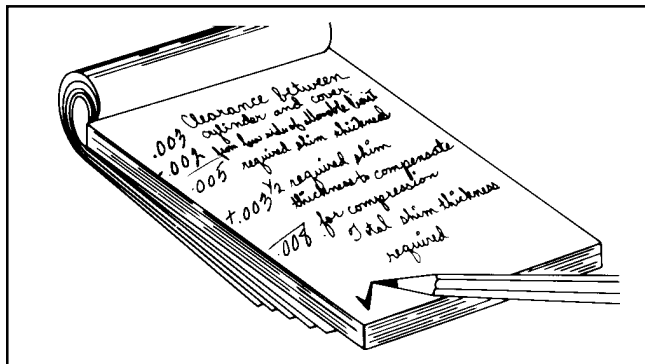 .003 Clearance between
cylinder and cover
+.002 from low side of allowable limit
.005 required shim thickness
+.003 1/2 required shim
thickness to compensate
for compression
.008 Total shim thickness
required